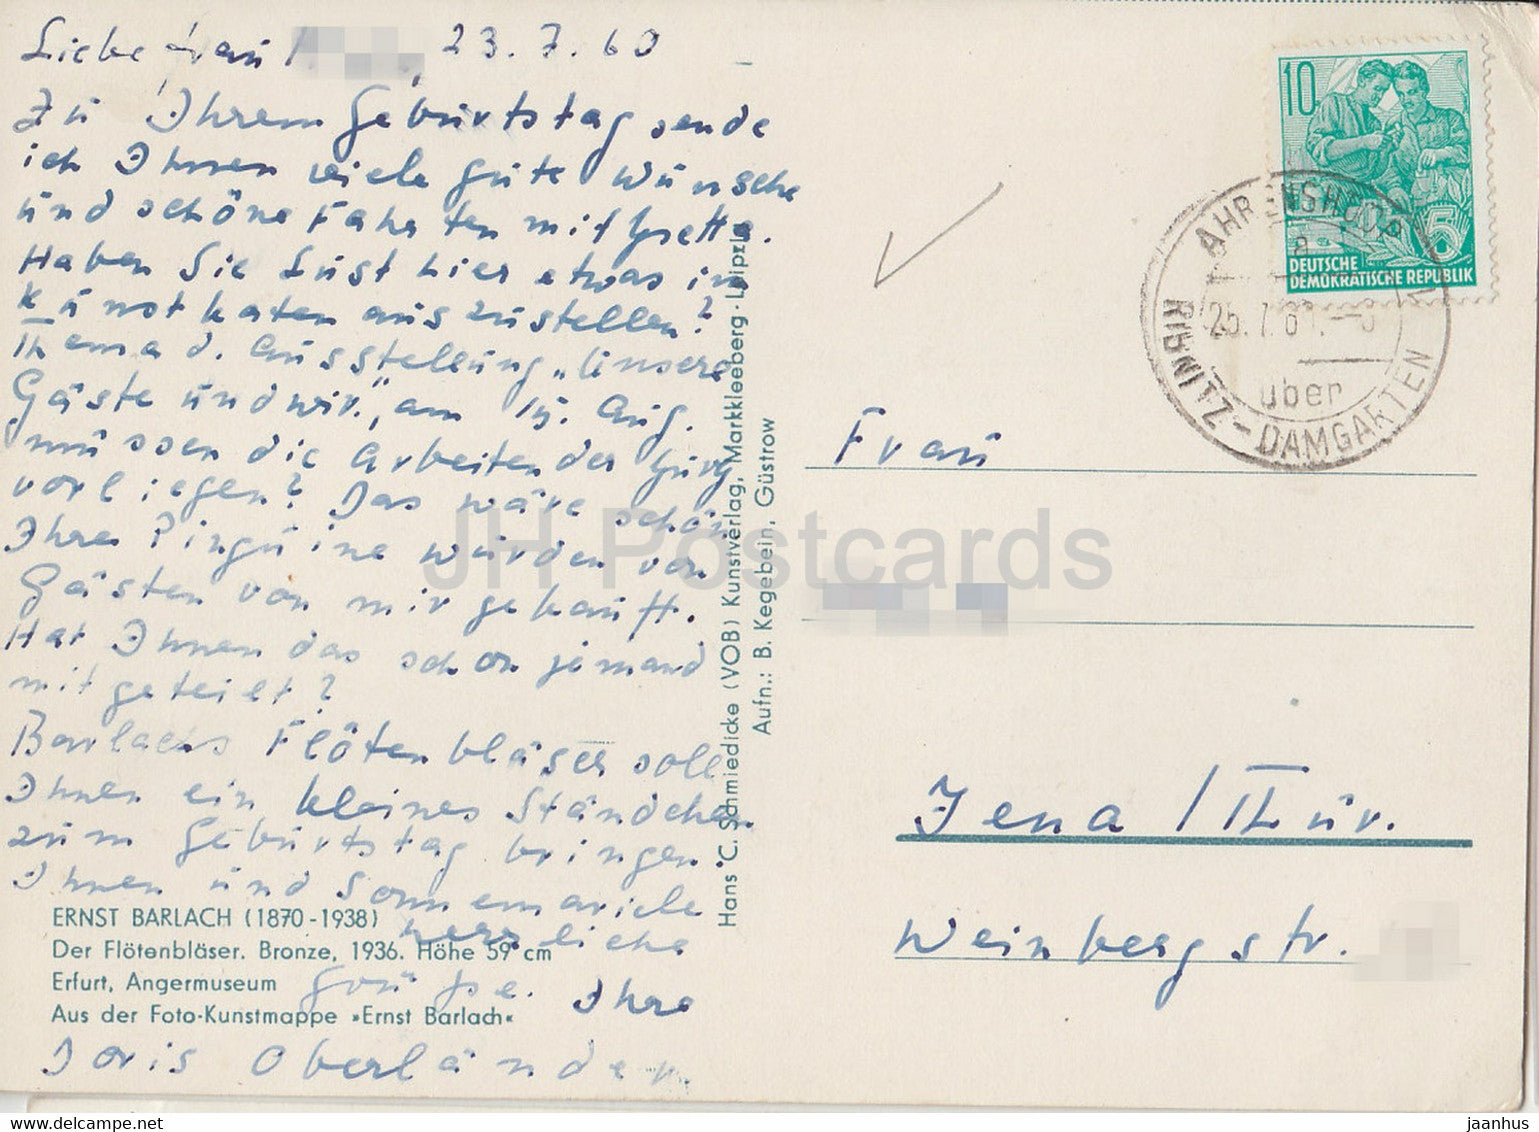 Liebe Frau 23.7.60
Zu Ihrem Geburtstag sende
ich Ihnen viele gute Wünsche
und schöne Fahrten mit Gretta.
Haben Sie Lust hier etwas im
Kunstkaten auszustellen?
Thema d. Ausstellung „Unsere
Gäste und wir.", am 15. Aug.
müssen die Arbeiten der Jury
vorliegen? Das wäre schön
Ihre Pinguine wurden von
Gästen von mir gekauft.
Hat Ihnen das schon jemand
mitgeteilt?
Barlachs Flötenbläser soll
Ihnen ein kleines Ständchen
zum Geburtstag bringen.
Ihnen und Sonne viele
herzliche
Grüße. Ihre
Doris Oberländer.
ERNST BARLACH (1870-1938)
Der Flötenbläser. Bronze, 1936. Höhe 59 cm
Erfurt, Angermuseum
Aus der Foto-Kunstmappe »Ernst Barlach«
Hans C. Schmiedicke (VOB) Kunstverlag, Markkleeberg · Leipzig
Aufn.: B. Kegebein, Güstrow
10
5
DEUTSCHE
DEMOKRATISCHE REPUBLIK
AHRENSHOOP
a
25.7.60
über
RIBNITZ-DAMGARTEN
Frau
Jena / Thür.
Weinbergstr.
JH Postcards
JH Postcards Store on delcampe.net
jaanhus